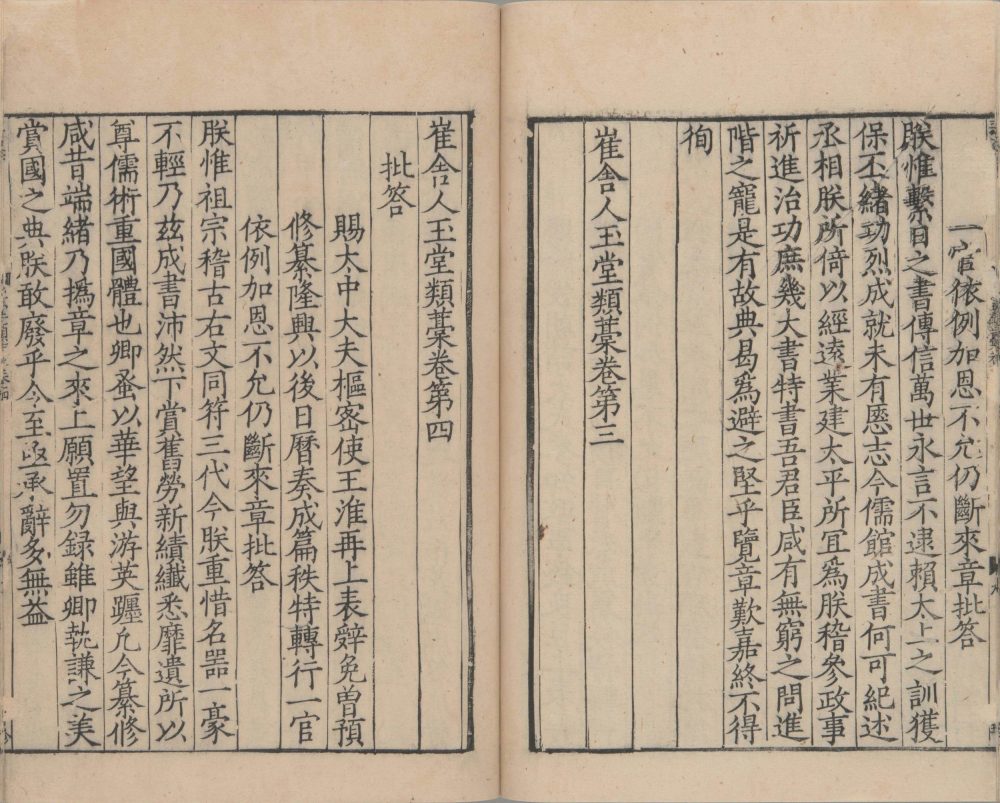 一官依例加恩不允仍斷來章批答
朕惟繫日之書傳信萬世永言不逮賴太上之訓獲
保丕緒功烈成就未有愿志今儒館成書何可紀述
丞相朕所倚以經遠業建太平所宜爲朕稽參政事
祈進治功庶幾大書特書吾君臣咸有無窮之問進
階之寵是有故典曷爲避之堅乎覽章歎嘉終不得
徇
崔舍人玉堂類藁卷第三
崔舍人玉堂類藁卷第四
批答
賜太中大夫樞密使王淮再上表辭免曽預
修纂隆興以後日曆奏成篇秩特轉行一官
依例加恩不允仍斷來章批答
朕惟祖宗稽古右文同符三代今朕重惜名器一豪
不輕乃兹成書沛然下賞舊勞新績纎悉靡遺所以
尊儒術重國體也卿蚤以華望與游英躔凢今纂修
咸昔端緒乃撝章之來上願置勿録雖卿執謙之美
賞國之典朕敢廢乎今至亟承辭多無益